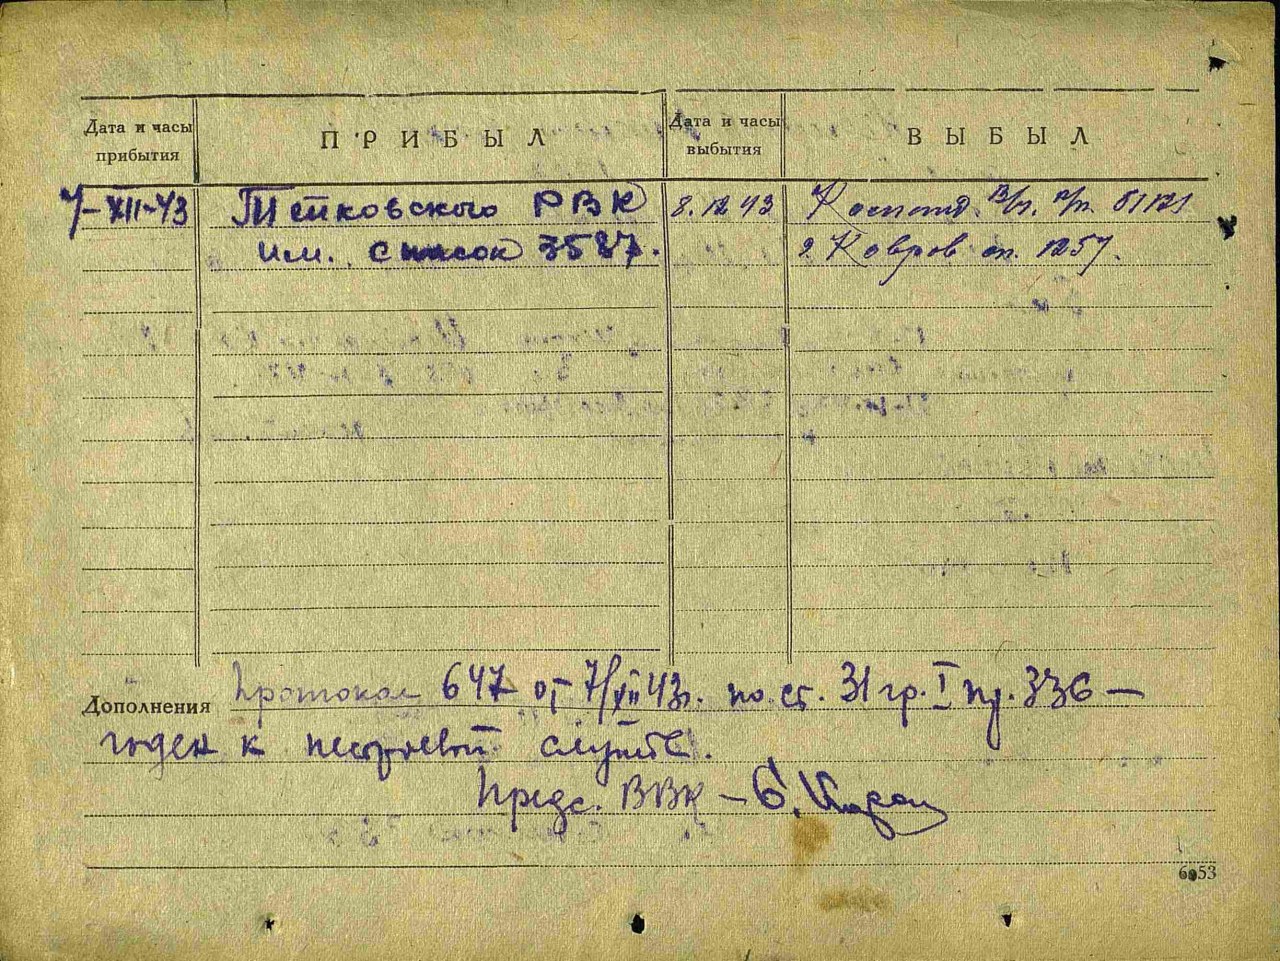 Дата и часы прибытия
ПРИБЫЛ
Дата и часы выбытия
ВЫБЫЛ
7-XII-43 Тейковского РВК 8.12.43 Команд. В/п. п/п 01121
им. список 3587. г. Ковров оп. 1257.
Дополнения Протокол 647 от 7/XII 43г. по ст. 31 гр. I пр. 336 —
годен к нестроевой службе.
Предс. ВВК –
6053